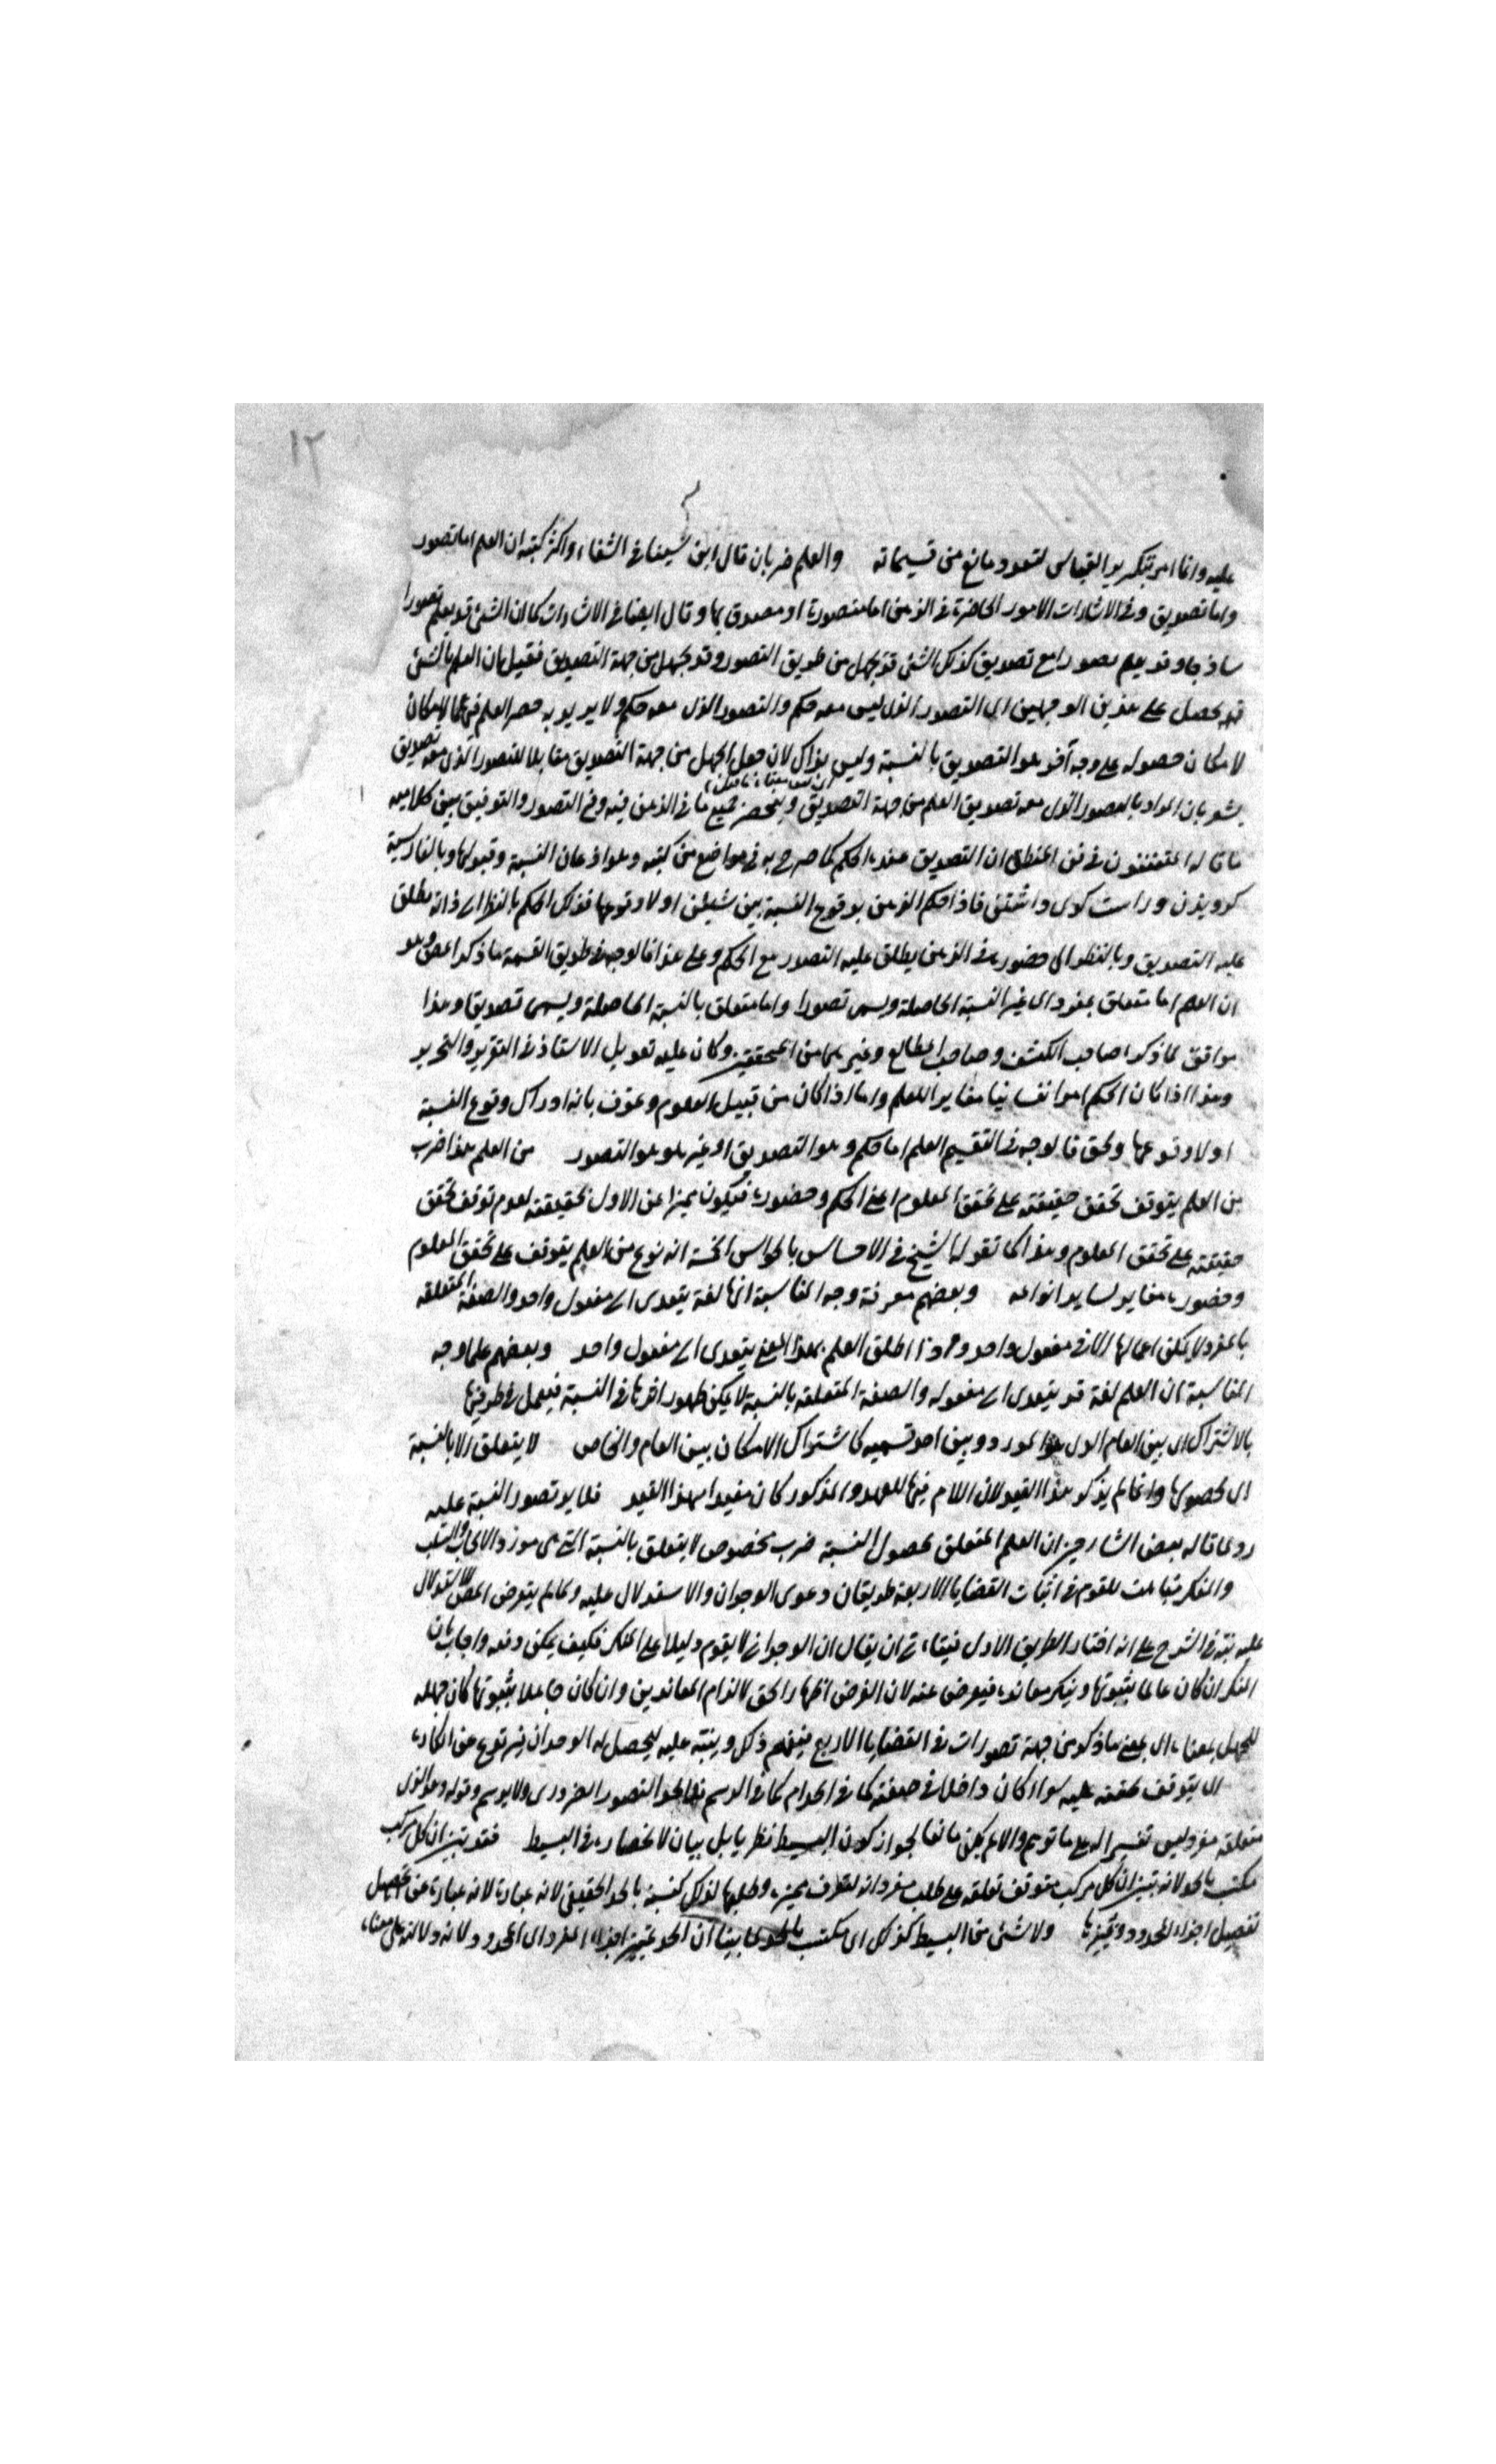 ١٢
عليه وانما امر بتكرير القياس لتعدد مانع من تسيماته والعلم ضربان قال ابن سينا في الشفاء واكثر كتبه ان العلم اما تصور
واما تصديق وفي الاشارات الامور الحاضرة في الذهن اما متصورة او مصدق بها وقال ايضا في الاشارات كما ان الشئ قد يعلم تصورا
ساذجا وقد يعلم تصورا مع تصديق كذلك الشئ قد يجهل من طريق التصور وقد يجهل من جهة التصديق فقيل بان العلم بالشئ
قد يحصل على هذين الوجهين اى التصور الذى ليس معه حكم والتصور الذى معه حكم ولا يريد به حصر العلم فيهما لامكان
لامكان حصوله على وجه آخر هو التصديق بالنسبة وليس بذاك لان جعل الجهل من جهة التصديق مقابلا للتصور الذى معه تصديق
يشعر بان المراد بالتصور الذى معه تصديق العلم من جهة التصديق وينحصر جميع ما في الذهن فيه وفي التصور والتوفيق بين كلاميه
ما قاله المتفننون في فن المنطق ان التصديق عنده الحكم كما صرح به في مواضع من كتبه وهو اذعان النسبة وقبولها وبالفارسية
كرويدن وراست كوى داشتن فاذا حكم الذهن بوقوع النسبة بين شيئين او لا وقوعها فذلك الحكم بالنظر الى ذاته يطلق
عليه التصديق وبالنظر الى حضوره في الذهن يطلق عليه التصور مع الحكم وعلى هذا فالوجه في طريق القسمة ما ذكره المص وهو
ان العلم اما متعلق بمفرد اى غير النسبة الحاصلة ويسمى تصورا واما متعلق بالنسبة الحاصلة ويسمى تصديقا وهذا
موافق لما ذكره صاحب الكشف وصاحب المطالع وغيرهما من المحققين وكان عليه تعويل الاستاذ في التقرير والتحرير
وهذا اذا كان الحكم امرا نفسانيا مغايرا للعلم واما اذا كان من قبيل العلوم وعرف بانه ادراك وقوع النسبة
او لا وقوعها وكحق فالوجه في التقسيم العلم اما حكم وهو التصديق او غيره وهو التصور من العلم هذا ضرب
من العلم يتوقف تحقق حقيقته على تحقق المعلوم اعنى الحكم وحضوره فيكون مميزا عن الاول بحقيقته لعدم توقف تحقق
حقيقته على تحقق المعلوم وهذا كما تقوله الشيخ في الاحساس بالحواس الخمسة انه نوع من العلم يتوقف على تحقق المعلوم
وحضوره مغاير لساير انواعه وبعضهم معرفة وجه المناسبة انها لغة يتعدى الى مفعول واحد والصفة المتعلقة
بالمفرد لا يمكن اعمالها الا في مفعول واحد اطلق العلم بهذا المعنى يتعدى الى مفعول واحد وبعضهم علما وجه
المناسبة ان العلم لغة قد يتعدى الى مفعوله والصفة المتعلقة بالنسبة لا يمكن ظهور اثرها في النسبة فيعمل في طرفيها
بالاشتراك اى بين العام الذى هو المورد وبين احد قسميه كاشتراك الامكان بين العام والخاص لا يتعلق الا بالنسبة
اى بحصولها وانما لم يذكر هذا القيد لان اللام فيها للعهد والمذكور كان مقيدا بهذا القيد فلا يرد تصور النسبة عليه
روى ما قاله بعض الشارحين ان العلم المتعلق بحصول النسبة ضرب مخصوص لا يتعلق بالنسبة التى هى مورد الايجاب والسلب
والفكر للقوم في اثبات القضايا الاربعة طريقان دعوى الوجدان والاستدلال عليه ولما لم يتعرض المص للاستدلال
عليه نبه في الشرح على انه اختار الطريق الاول ان يقال ان الوجدانى لا يقوم دليلا على المنكر فكيف يمكن دفعه واجاب بان
المنكر ان كان عالما بثبوتها وينكر معاندة فيعرض عنه لان الغرض اظهار الحق لا الزام المعاندين وان كان جاهلا بثبوتها كان جهله
للجهل بمعناه اى بمعنى ما ذكر من جهة تصورات في القضايا الاربع فيفهم ذلك وينبه عليه ليحصل له الوجدان فيرتدع عن انكاره
اى يتوقف تحققه عليه سواء كان داخلا في حقيقته كما في الحد ام كما في الرسم التصور الضرورى ولا يرسم وقوله وهو الذى
متعلقه مفرد ليس تفسيرا له على ما توهم والا لم يكن مانعا لجواز كون البسيط نظريا بل بيان لانحصاره في البسيط فقد تبين ان كل مركب
مكتسب بالحد لانه تبين ان كل مركب متوقف تعلقه على طلب مفرداته لتعرف مميزه وطلبها لذلك كسبه بالحد الحقيقى لانه عبارة عن تحصيل
تفصيل اجزاء المحدود وتميزها ولا شئ من البسيط كذلك اى مكتسب بالحد لما بينا ان الحد تمييز اجزاء المفرد اى المحدود لانه دلالة على معناه